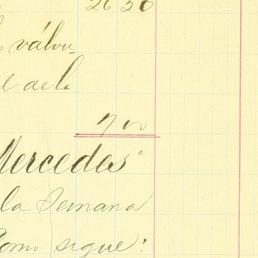 26 50
válvu
7 00
Mercedes"
la Semana
Como sigue: